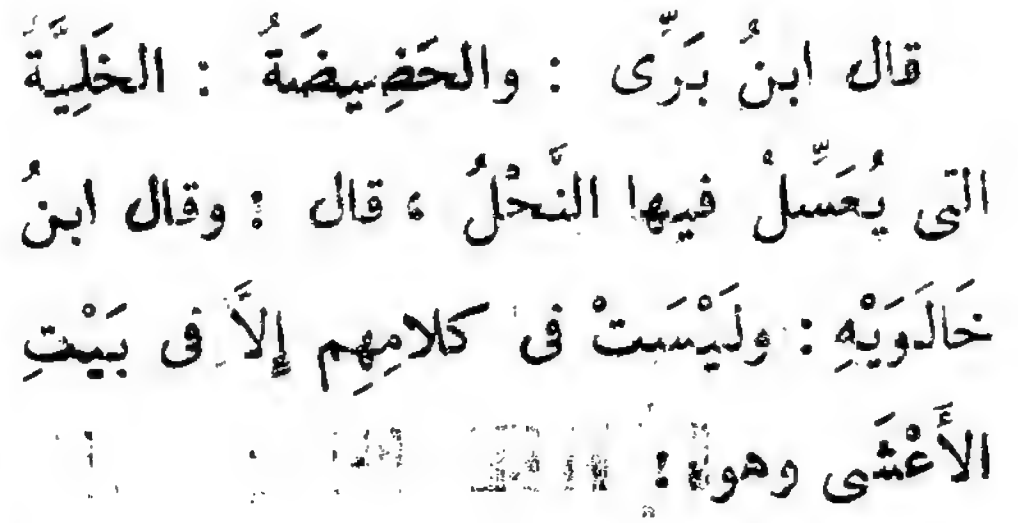 قال ابنُ بَرِّى : والحَضِيضَةُ : الخَلِيَّةُ
التى يُعَسِّلُ فيها النَّحْلُ ، قال : وقال ابنُ
خَالَوَيْهِ : ولَيْسَتْ فى كلامِهِم إِلاَّ فى بَيْتِ
الأَعْشَى وهو :